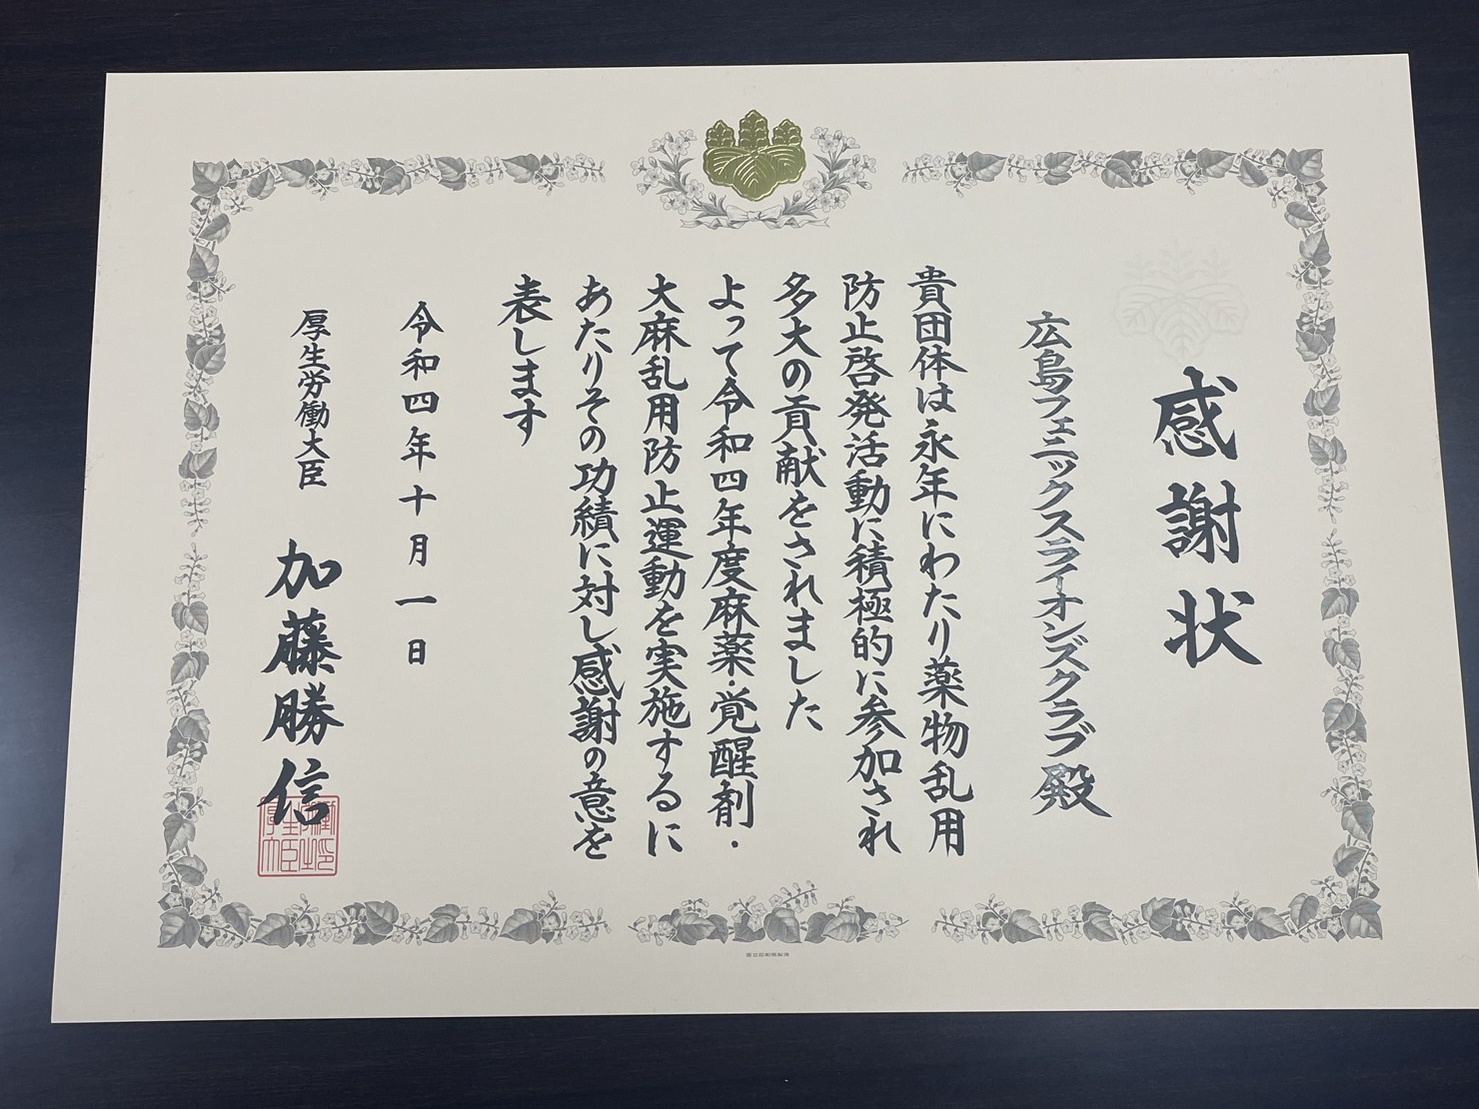 感謝状
広島フェニックスライオンズクラブ殿
貴団体は永年にわたり薬物乱用
防止啓発活動に積極的に参加され
多大の貢献をされました
よって令和四年度麻薬・覚醒剤・
大麻乱用防止運動を実施するに
あたりその功績に対し感謝の意を
表します
令和四年十月一日
厚生労働大臣 加藤勝信